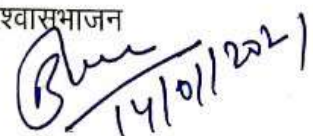 श्वासभाजन
14/01/2021